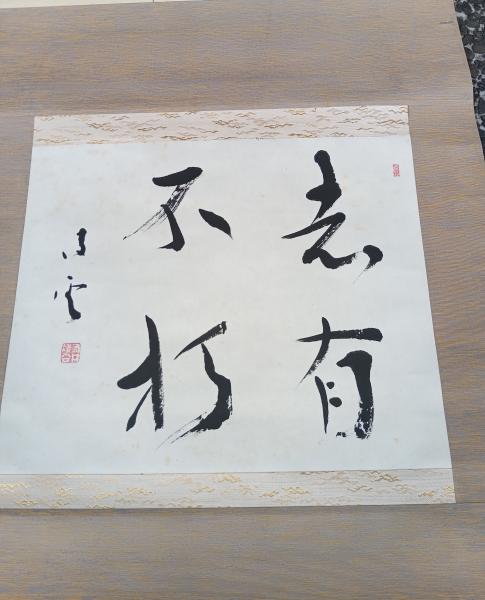 志有
不朽